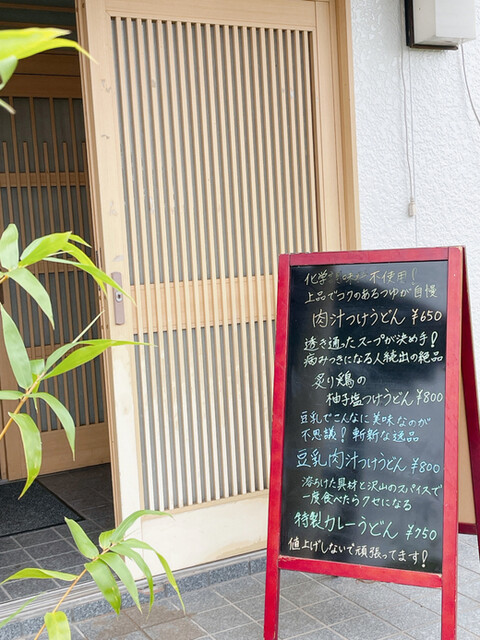 化学調味料不使用!
上品でコクのあるつゆが自慢
肉汁つけうどん ¥650
透き通ったスープが決め手!
病みつきになる人続出の絶品
炙り鶏の
柚子塩つけうどん ¥800
豆乳でこんなに美味なのが
不思議! 斬新な逸品
豆乳肉汁つけうどん ¥800
溶ろけた具材と沢山のスパイスで
一度食べたらクセになる
特製カレーうどん ¥750
値上げしないで頑張ってます!